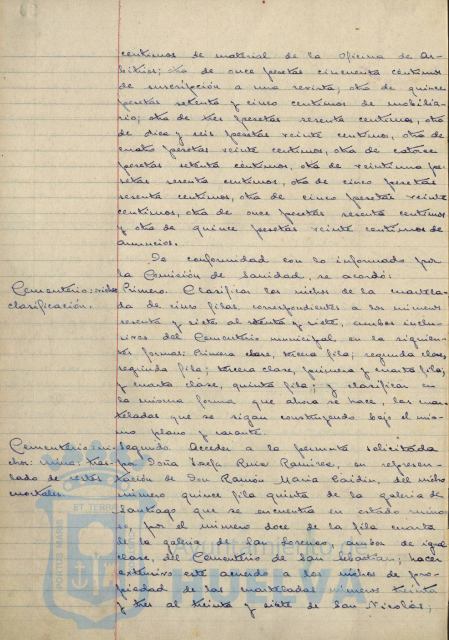 centimos de material de la Oficina de Ar-
bitrios; otra de once pesetas cincuenta centimos
de suscripción a una revista; otra de quince
pesetas setenta y cinco centimos de mobilia-
rio; otra de tres pesetas sesenta centimos, otra
de diez y seis pesetas veinte centimos, otra de
cuatro pesetas veinte centimos, otra de catorce
pesetas setenta centimos, otra de veintiuna pe-
setas sesenta centimos, otra de cinco pesetas
sesenta centimos, otra de cinco pesetas veinte
centimos, otra de once pesetas sesenta centimos
y otra de quince pesetas veinte centimos de
anuncios.
De conformidad con lo informado por
la Comisión de Sanidad, se acordó:
Cementerio: nichos
clasificación.
Primero. Clasificar los nichos de la mantela-
da de cinco filas, correspondientes a los números
sesenta y siete al setenta y siete, ambos inclu-
sives del Cementerio municipal, en la siguien-
tes formas: Primera clase, tercera fila; segunda clase,
segunda fila; tercera clase, primera y cuarta fila;
y cuarta clase, quinta fila; y clasificar en
la misma forma que ahora se hace, las man-
teladas que se sigan construyendo bajo el mis-
mo plano y
Cementerio: ni-
chos: ruina: tras-
lado de restos
mortales.
Segundo. Acceder a la permuta solicitada
por Doña Josefa Ruiz Ramirez, en represen-
tación de Don Ramón Maria del nicho
número quince fila quinta de la galeria de
Santiago que se encuentra en estado ruino-
so, por el número doce de la fila cuarta
de la galeria de San Lorenzo, ambos de igual
clase, del Cementerio de San Sebastian; hacer
extensivo este acuerdo a los nichos de pro-
piedad de las manteladas números treinta
y tres al treinta y siete de San Nicolás;
PORTUS MARIS ET TERRAE
Ayuntamiento de
HUELVA